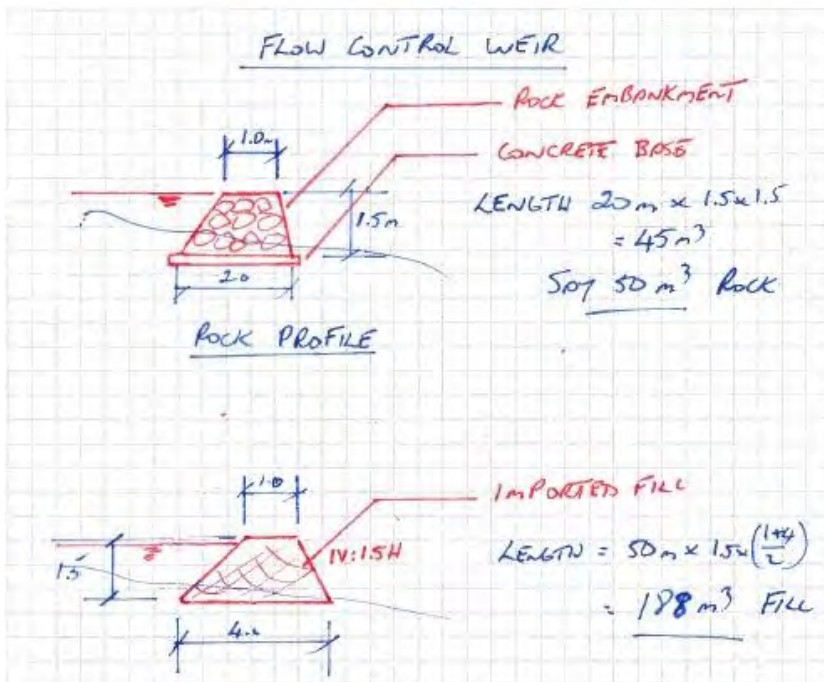 FLOW CONTROL WEIR
ROCK EMBANKMENT
1.0m
CONCRETE BASE
LENGTH 20m x 1.5x1.5
1.5m
= 45m³
2.0
SAY 50 m³ ROCK
ROCK PROFILE
1.0
IMPORTED FILL
1V:1.5H
LENGTH = 50m x 1.5x(1+4/2)
1.5
= 188m³ FILL